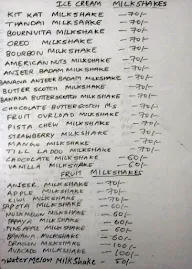 ICE CREAM MILKSHAKES
KIT KAT MILKSHAKE — 70/-
THANDAI MILKSHAKE — 70/-
BOURNVITA MILKSHAKE — 70/-
OREO MILKSHAKE — 70/-
BOURBON MILKSHAKE — 70/-
AMERICAN NUTS MILKSHAKE — 70/-
ANJEER BADAM MILKSHAKE — 70/-
BANANA ANJEER BADAM MILKSHAKE — 70/-
BUTTER SCOTCH MILKSHAKE — 70/-
BANANA BUTTER SCOTCH MILKSHAKE — 70/-
CHOCOLATE BUTTER SCOTCH M.S — 70/-
FRUIT OVERLOAD MILKSHAKE — 70/-
PISTA CHEW MILKSHAKE — 70/-
STRAWBERRY MILKSHAKE — 70/-
MANGO MILKSHAKE — 70/-
TILL LADOO MILKSHAKE — 70/-
CHOCOLATE MILKSHAKE — 50/-
VANILLA MILKSHAKE — 50/-
FRUIT MILKSHAKES
ANJEER MILKSHAKE — 70/-
APPLE MILKSHAKE — 70/-
KIWI MILKSHAKE — 70/-
SAPOTA MILKSHAKE — 60/-
MUSKMELON MILKSHAKE — 60/-
PAPAYA MILKSHAKE — 60/-
PINEAPPLE MILKSHAKE — 50/-
BANANA MILKSHAKE — 50/-
DRAGON MILKSHAKE — 100/-
AVACADO MILKSHAKE — 100/-
WATERMELON MILKSHAKE — 50/-